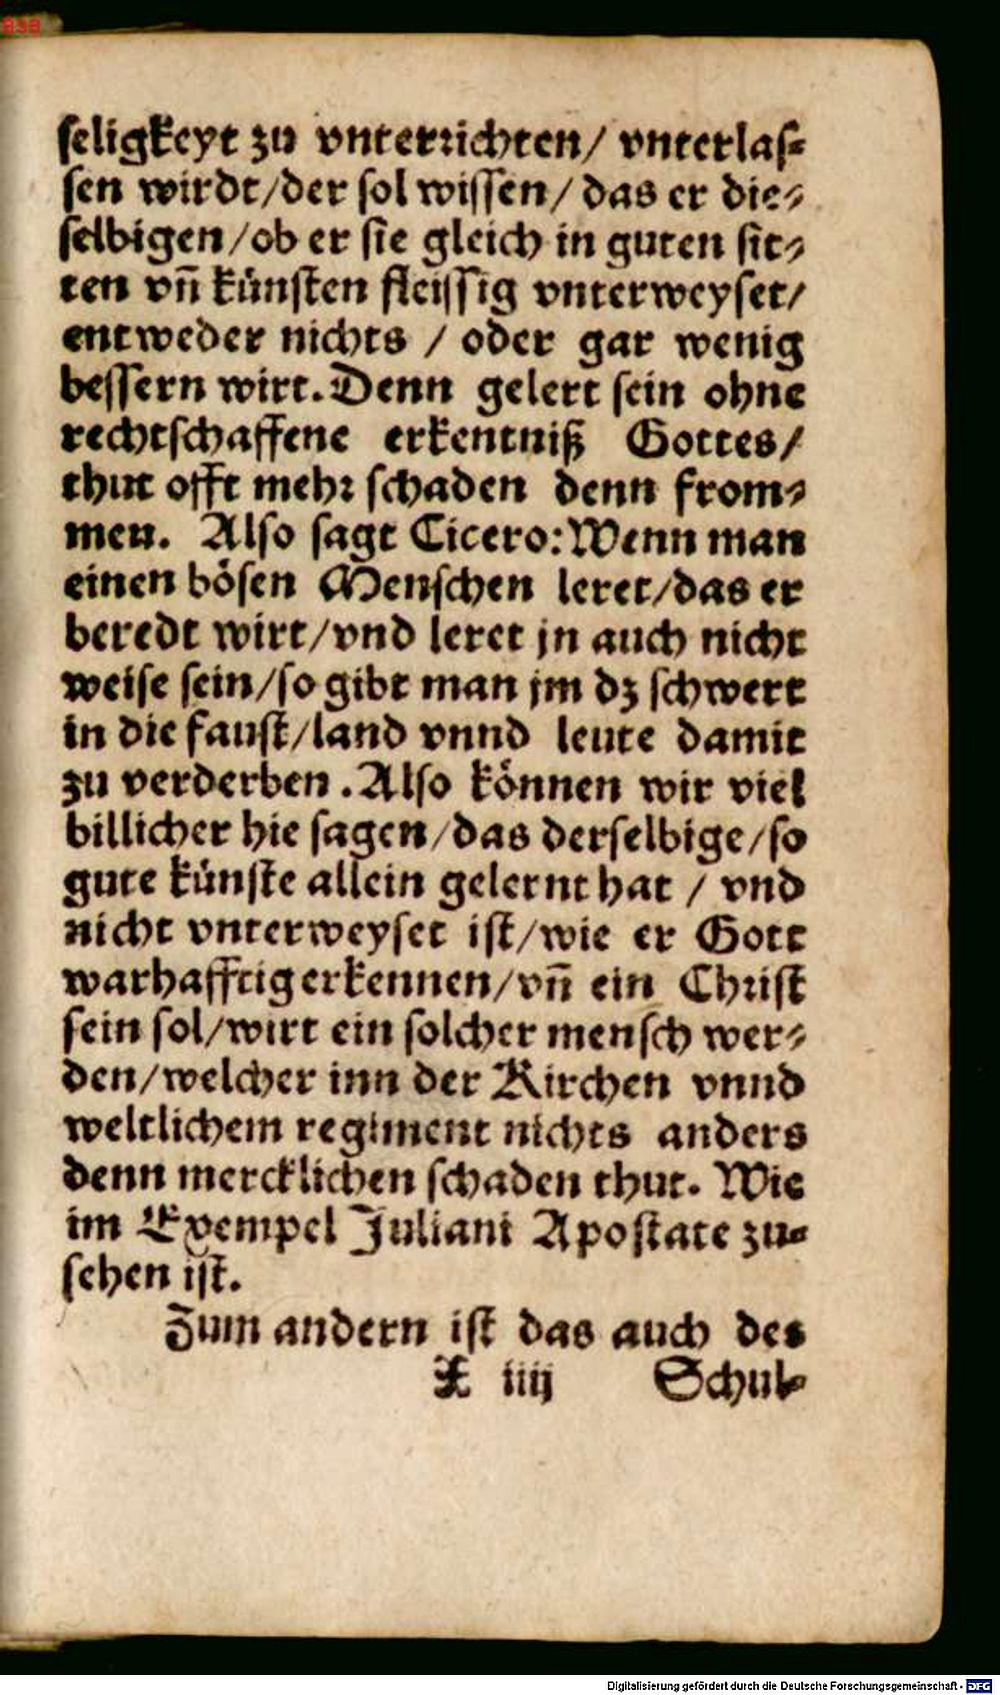 BSB
seligkeyt zu vnterrichten/ vnterlas-
sen wirdt/der sol wissen/ das er die-
selbigen/ob er sie gleich in guten sit-
ten vñ künsten fleissig vnterweyset/
entweder nichts / oder gar wenig
bessern wirt. Denn gelert sein ohne
rechtschaffene erkentniß Gottes/
thut offt mehr schaden denn from-
men. Also sagt Cicero: Wenn man
einen bösen Menschen leret/das er
beredt wirt/vnd leret jn auch nicht
weise sein/so gibt man jm dz schwert
in die faust/land vnnd leute damit
zu verderben. Also können wir viel
billicher hie sagen/das derselbige/so
gute künste allein gelernt hat / vnd
nicht vnterweyset ist/wie er Gott
warhafftig erkennen/vñ ein Christ
sein sol/wirt ein solcher mensch wer-
den/welcher inn der Kirchen vnnd
weltlichem regiment nichts anders
denn mercklichen schaden thut. Wie
im Exempel Juliani Apostate zu-
sehen ist.
Zum andern ist das auch des
X iiij Schul-
Digitalisierung gefördert durch die Deutsche Forschungsgemeinschaft - DFG